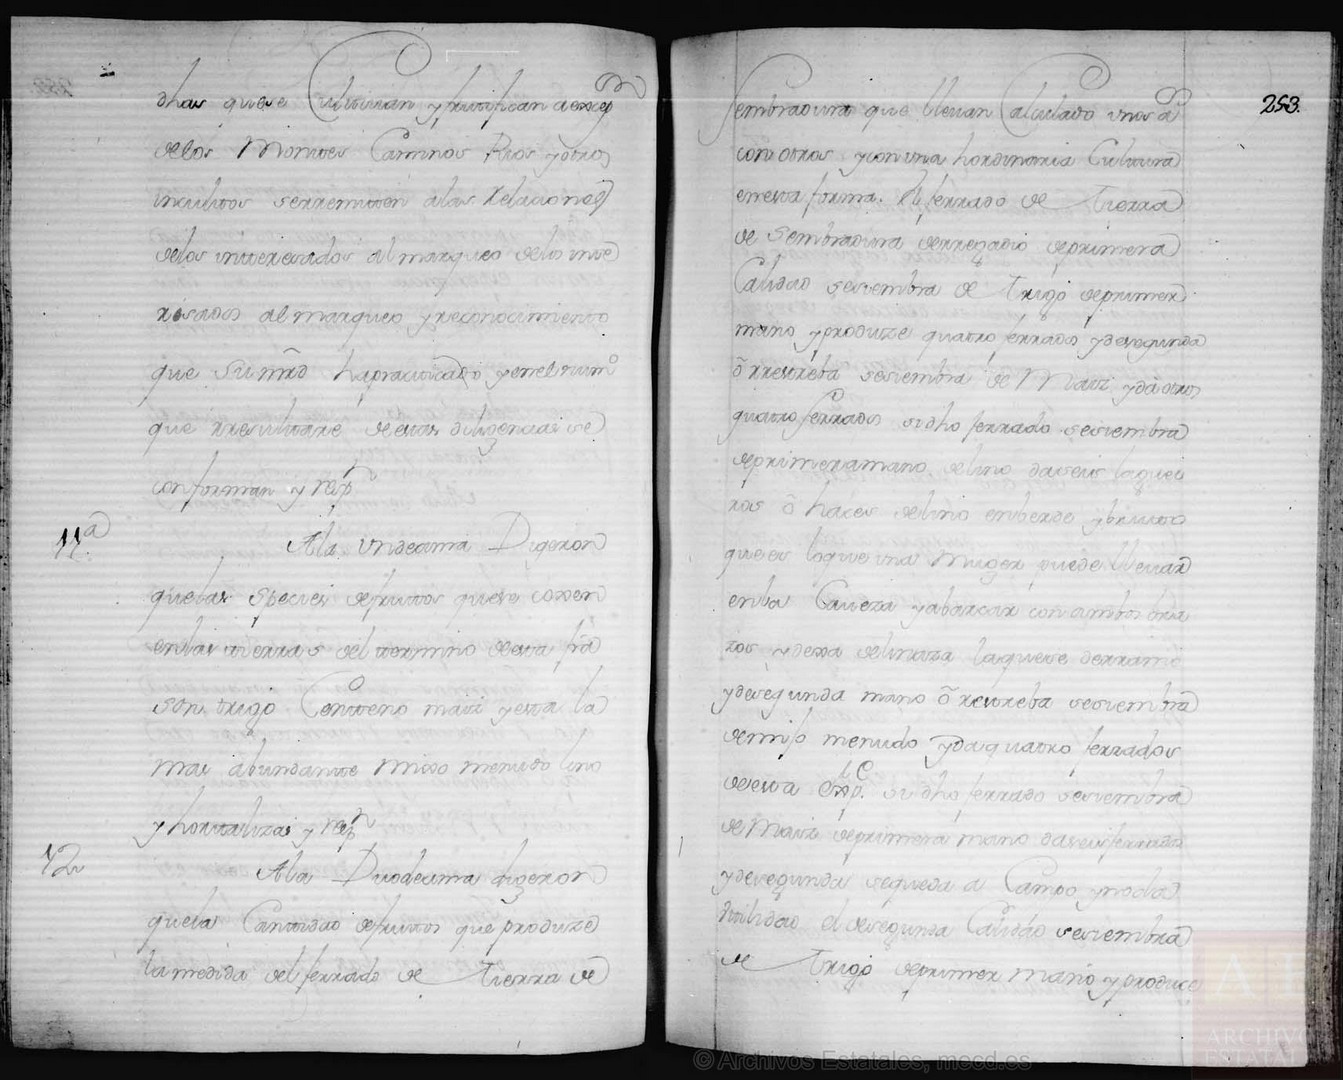 dhas quese Cultiuan y frutifican aexcepon
delos Montes Caminos Rios y otros
incultos serremiten alas Relaciones
delos interesados al marqueo delos inte
resados al marqueo y reconocimiento
que sum̃rd ha practicado y en el numo
que rresultare deestas diligencias se
conforman y respn
11a
Ala Undezima Digeron
quelas Species defrutos quese cogen
enlas tierras del termino deesta fra
son trigo Centeno maiz y esta la
mas abundante Mixo menudo lino
y hortalizas y respn
12
Ala Duodezima digeron
quela Cantidad defrutos que produze
la medida del ferrado de tierra de
253.
Sembradura que lleuan Calculado unos a
con otros y con una hordinaria Cultura
enesta forma. El ferrado de tierra
de Sembradura derregadio deprimera
Calidad sesiembra de trigo deprimer
mano y produze quatro ferrados y desegunda
ó rrestreba sesiembra de Maiz y da otros
quatro ferrados sidho ferrado sesiembra
deprimeramano delino daseis laquei
ros ó hazes delino enberde y bruto
quees loque una Muger puede lleuar
enla Caueza y abarcar con ambos bra
zos y dexa delinaza laquese derramó
y desegunda mano ó restreba sesiembra
demijo menudo y da quatro ferrados
deesta espe. sidho ferrado sesiembra
de Maiz deprimera mano da seis ferrados
y desegunda sequeda a Campo y no da
Utilidad el desegunda Calidad sesiembra
de trigo deprimer mano y produce
© Archivos Estatales, mecd.es
ARCHIVO
ESTATAL